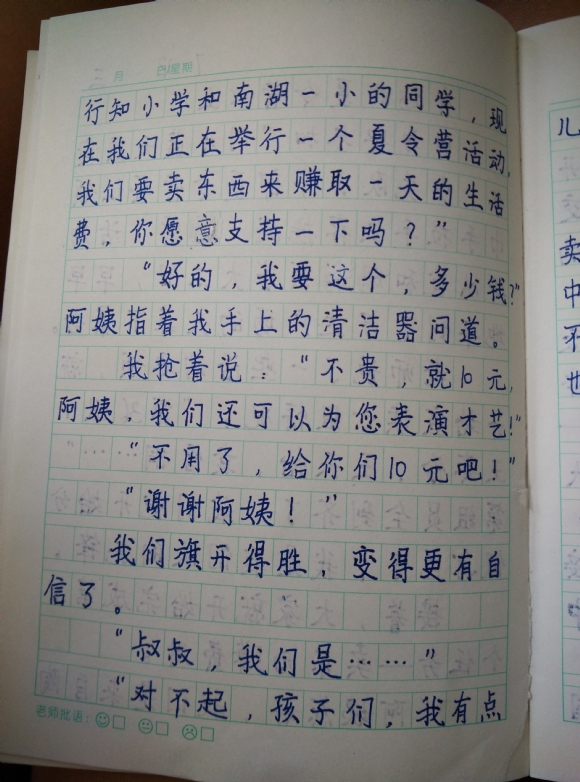 三 月 日/星期
行知小学和南湖一小的同学，现
在我们正在举行一个夏令营活动，
我们要卖东西来赚取一天的生活
费，你愿意支持一下吗？”
“好的，我要这个，多少钱？”
阿姨指着我手上的清洁器问道。
我抢着说：“不贵，就10元，
阿姨，我们还可以为您表演才艺！”
“不用了，给你们10元吧！”
“谢谢阿姨！”
我们旗开得胜，变得更有自
信了。
“叔叔，我们是……”
“对不起，孩子们，我有点
老师批语：
儿
卖
中
不
也